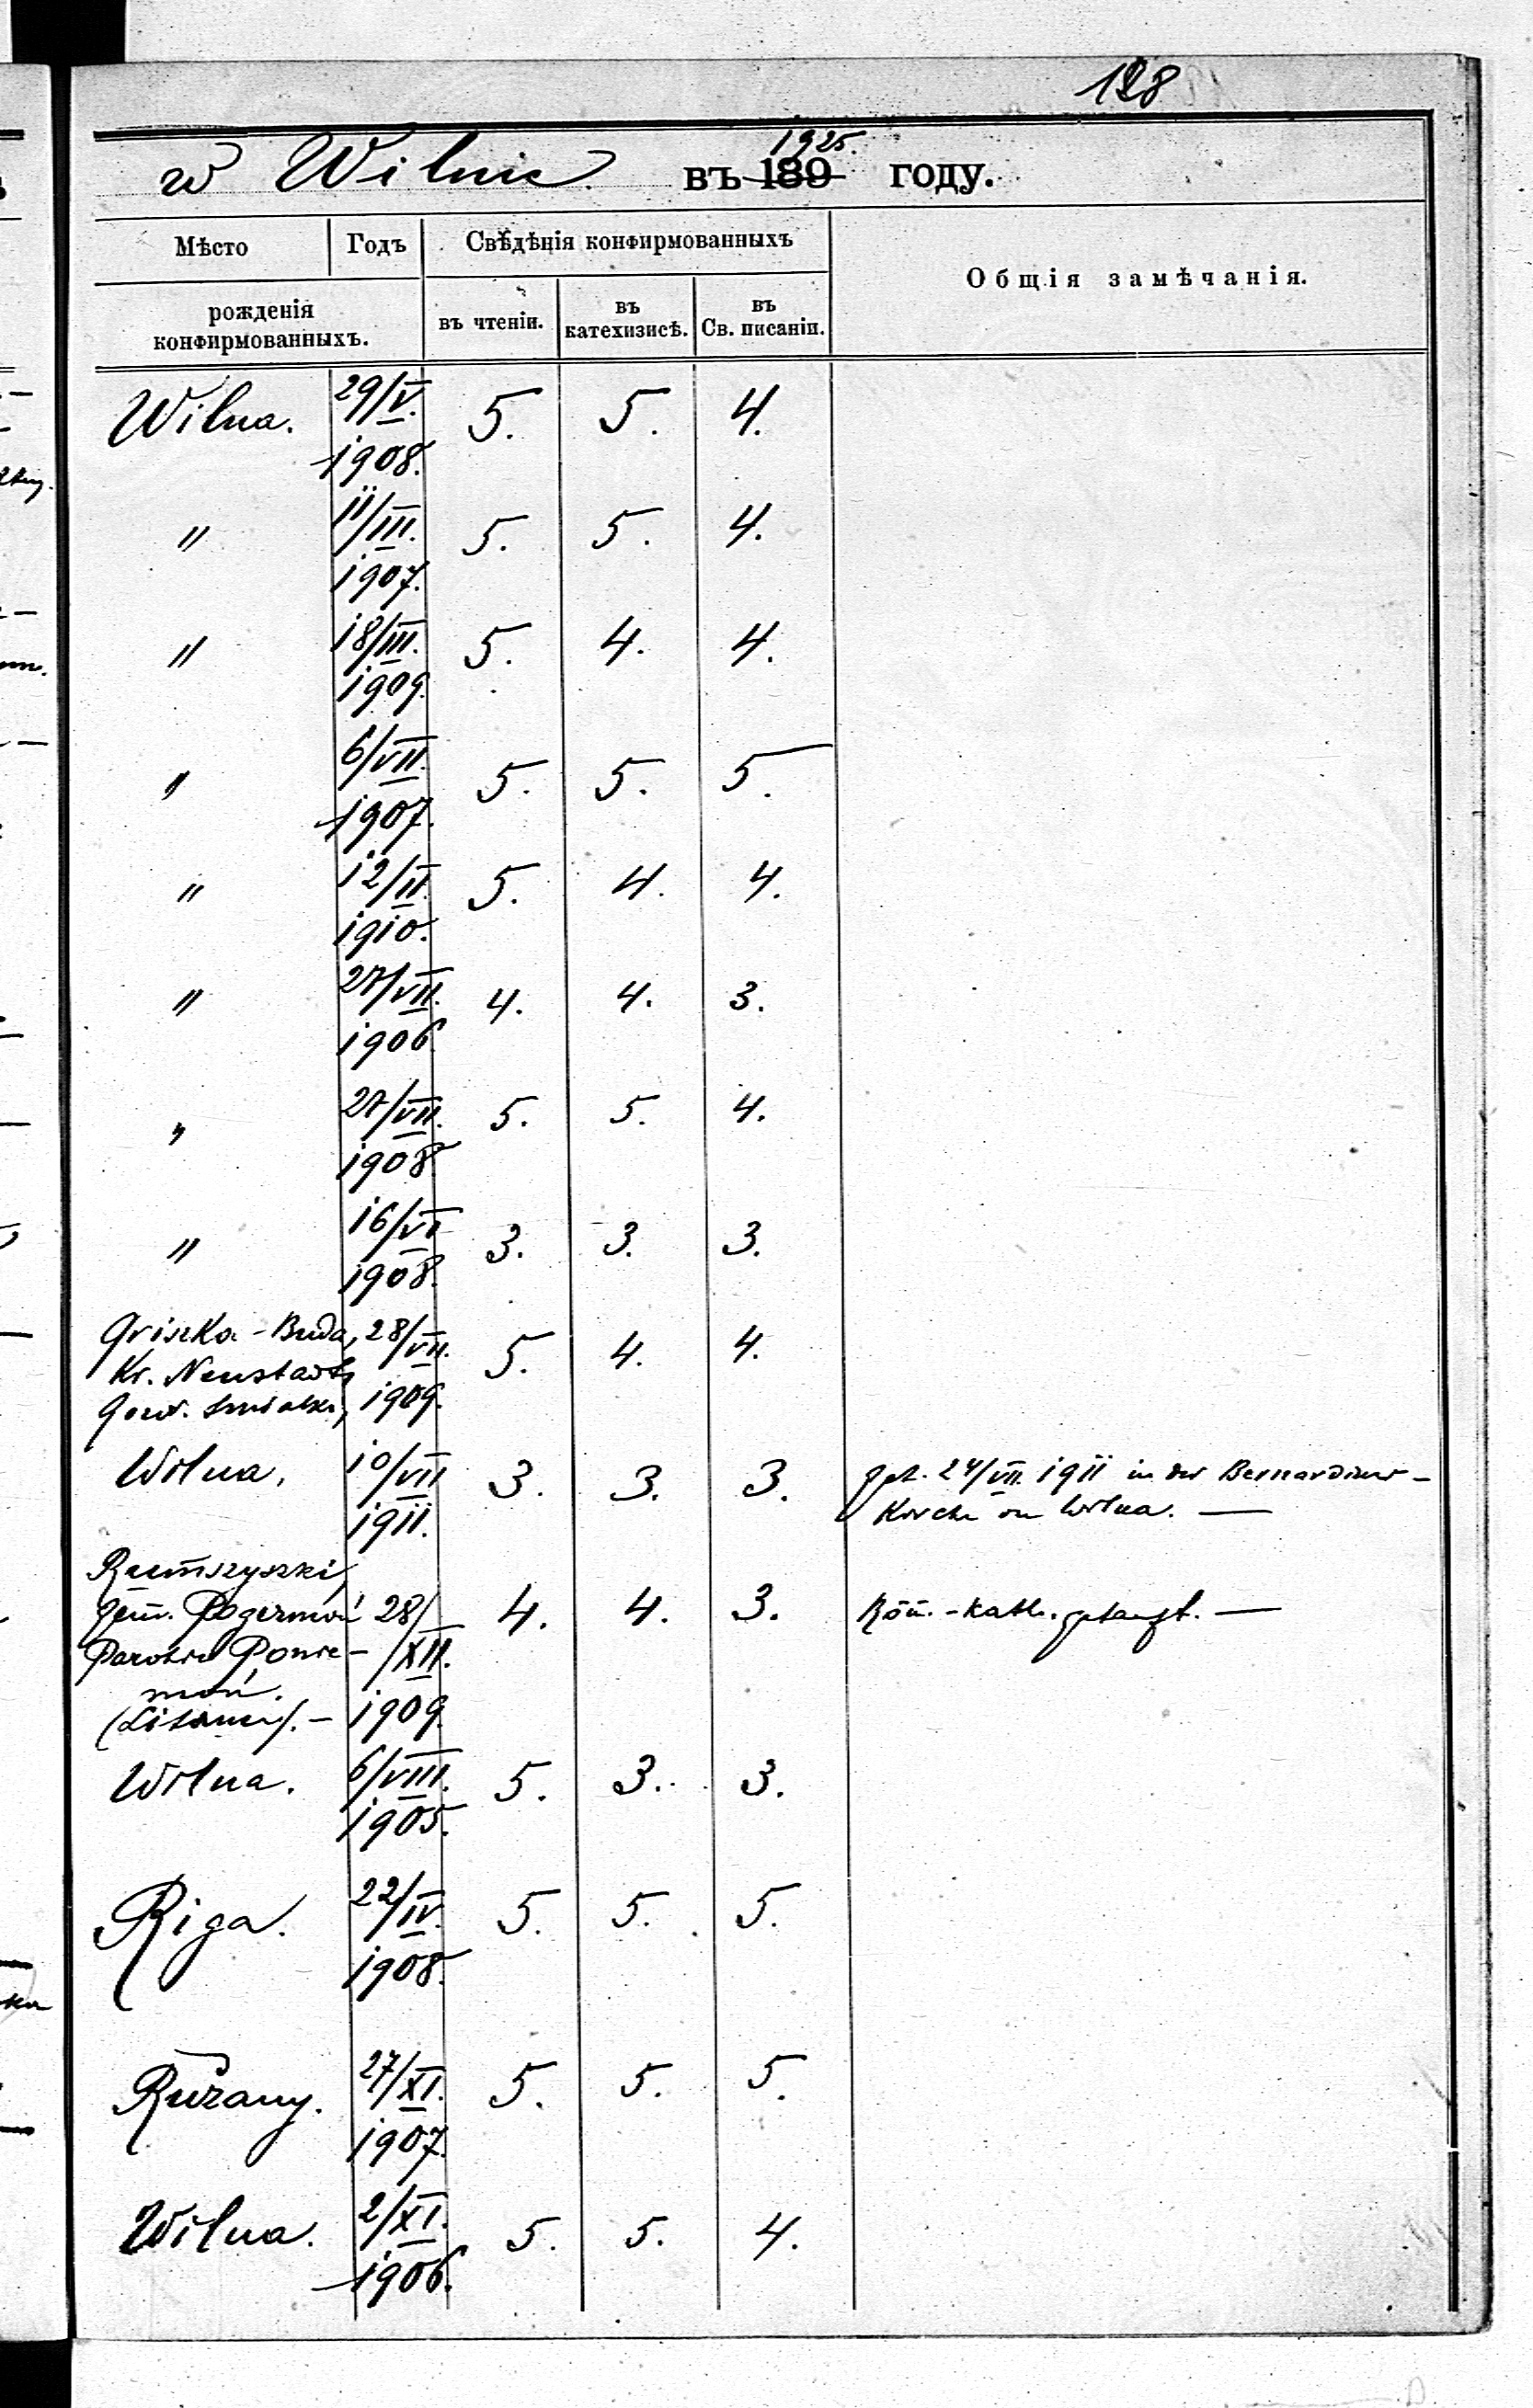 128
w Wilnie. въ 189 1925. году.
Мѣсто Годъ Свѣдѣнія конфирмованныхъ Общія замѣчанія.
рожденія
конфирмованныхъ.
въ чтеніи. въ катехизисѣ. въ Св. писаніи.
Wilna. 29/V. 5. 5. 4.
1908.
" 11/III. 5. 5. 4.
1907.
" 18/III. 5. 4. 4.
1909.
" 6/VII. 5. 5. 5.
1907.
" 12/II. 5. 4. 4.
1910.
" 27/VII. 4. 4. 3.
1906
" 27/VII. 5. 5. 4.
1908
" 16/VI 3. 3. 3.
1908.
Griszka-Buda, 28/VII. 5. 4. 4.
Kr. Neustadt,
Gouv. 1909.
Wilna. 10/VII 3. 3. 3. get. 24/VII. 1911 in der Bernardiner-
1911. Kirche in Wilna. —
Rumszyszki,
gem. Pogermoń 28/XII. 4. 4. 3. Röm.-kath. getauft. —
Parohie Ponie-
moń.
(Litauen). – 1909.
Wilna. 6/VIII. 5. 3. 3.
1905.
Riga. 22/IV. 5. 5. 5.
1908.
Rużany. 27/XI. 5. 5. 5.
1907.
Wilna. 2/XI. 5. 5. 4.
1906.